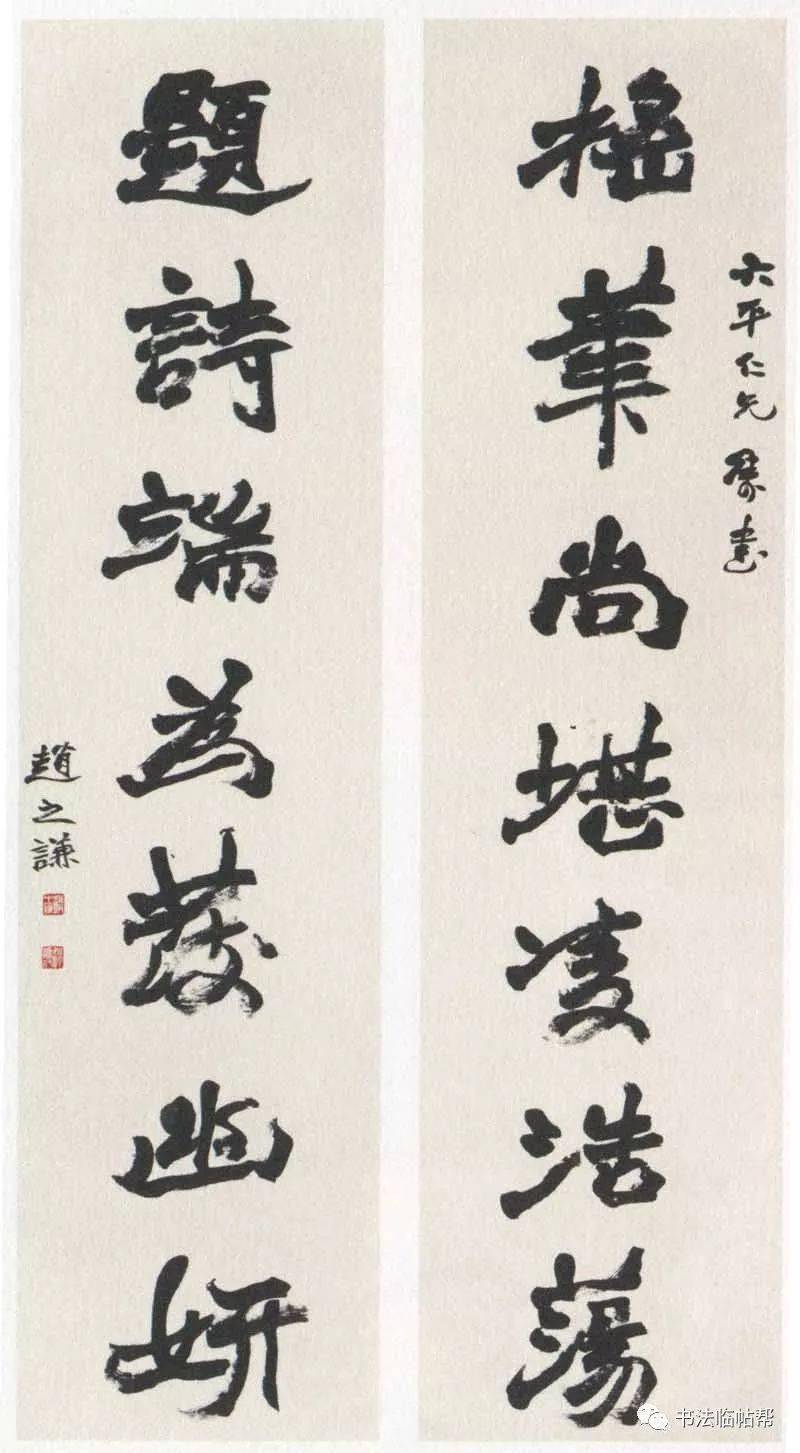 六平仁兄屬書
搖筆尚堪凌浩蕩
題詩端為發幽妍
趙之謙
书法临帖帮